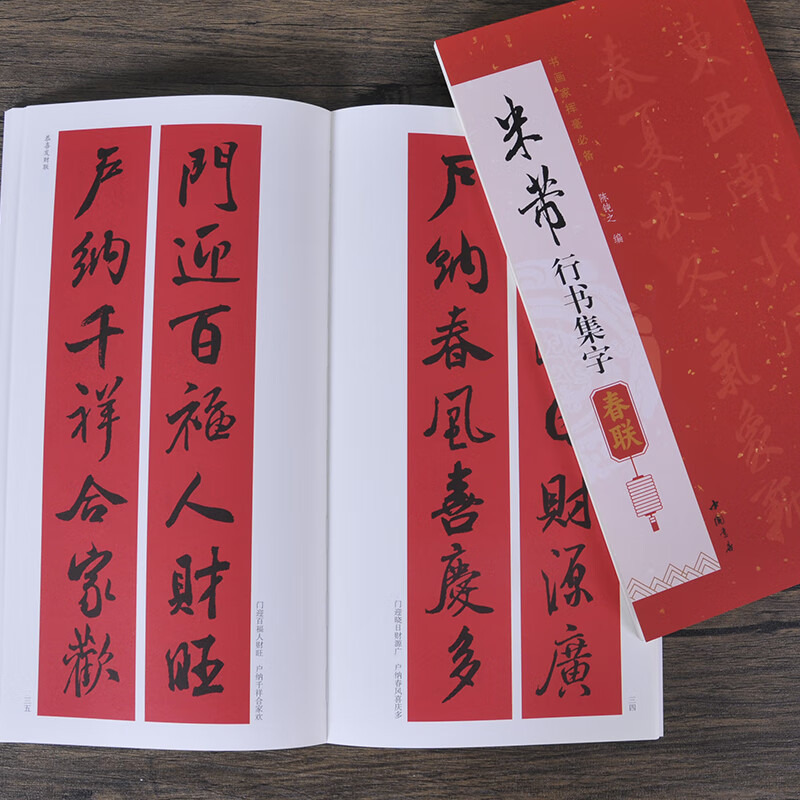 书画家挥毫必备
米芾
行书集字
春联
陈钝之 编
中国书店
春夏秋冬氣象新
東西南北
財源廣
户納春風喜慶多
门迎晓日财源广 户纳春风喜庆多
三四
門迎百福人財旺
户納千祥合家歡
门迎百福人财旺 户纳千祥合家欢
恭喜发财联
三五